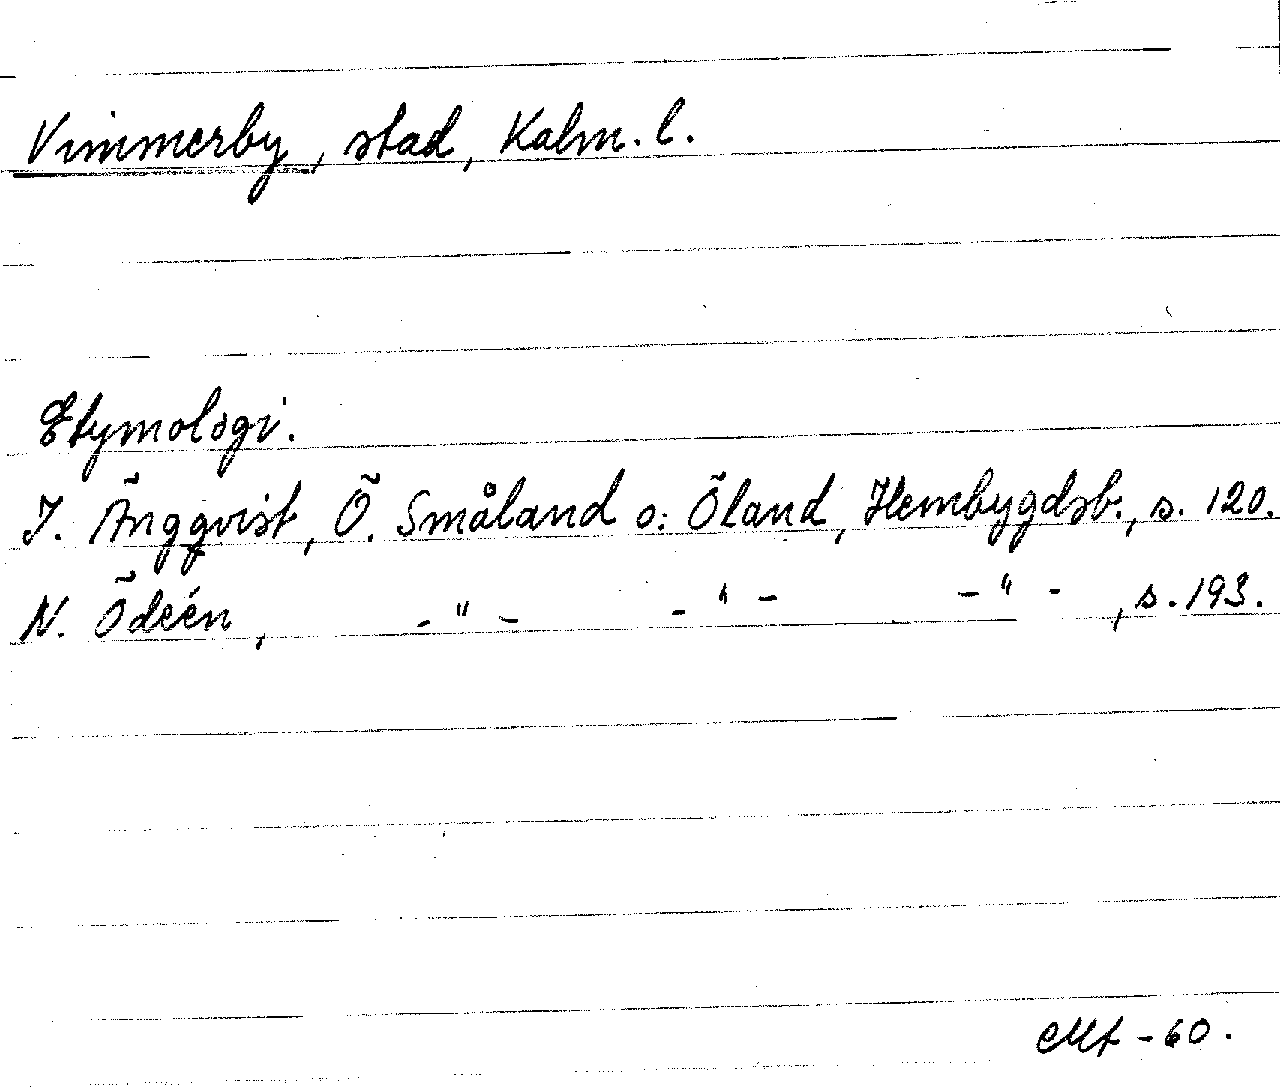 Vimmerby, stad, Kalm. l.
Etymologi.
I. Ängqvist, Ö. Småland o. Öland, Hembygdsb., s. 120.
N. Ödeén, - " - - " - - " - , s. 193.
- 60.